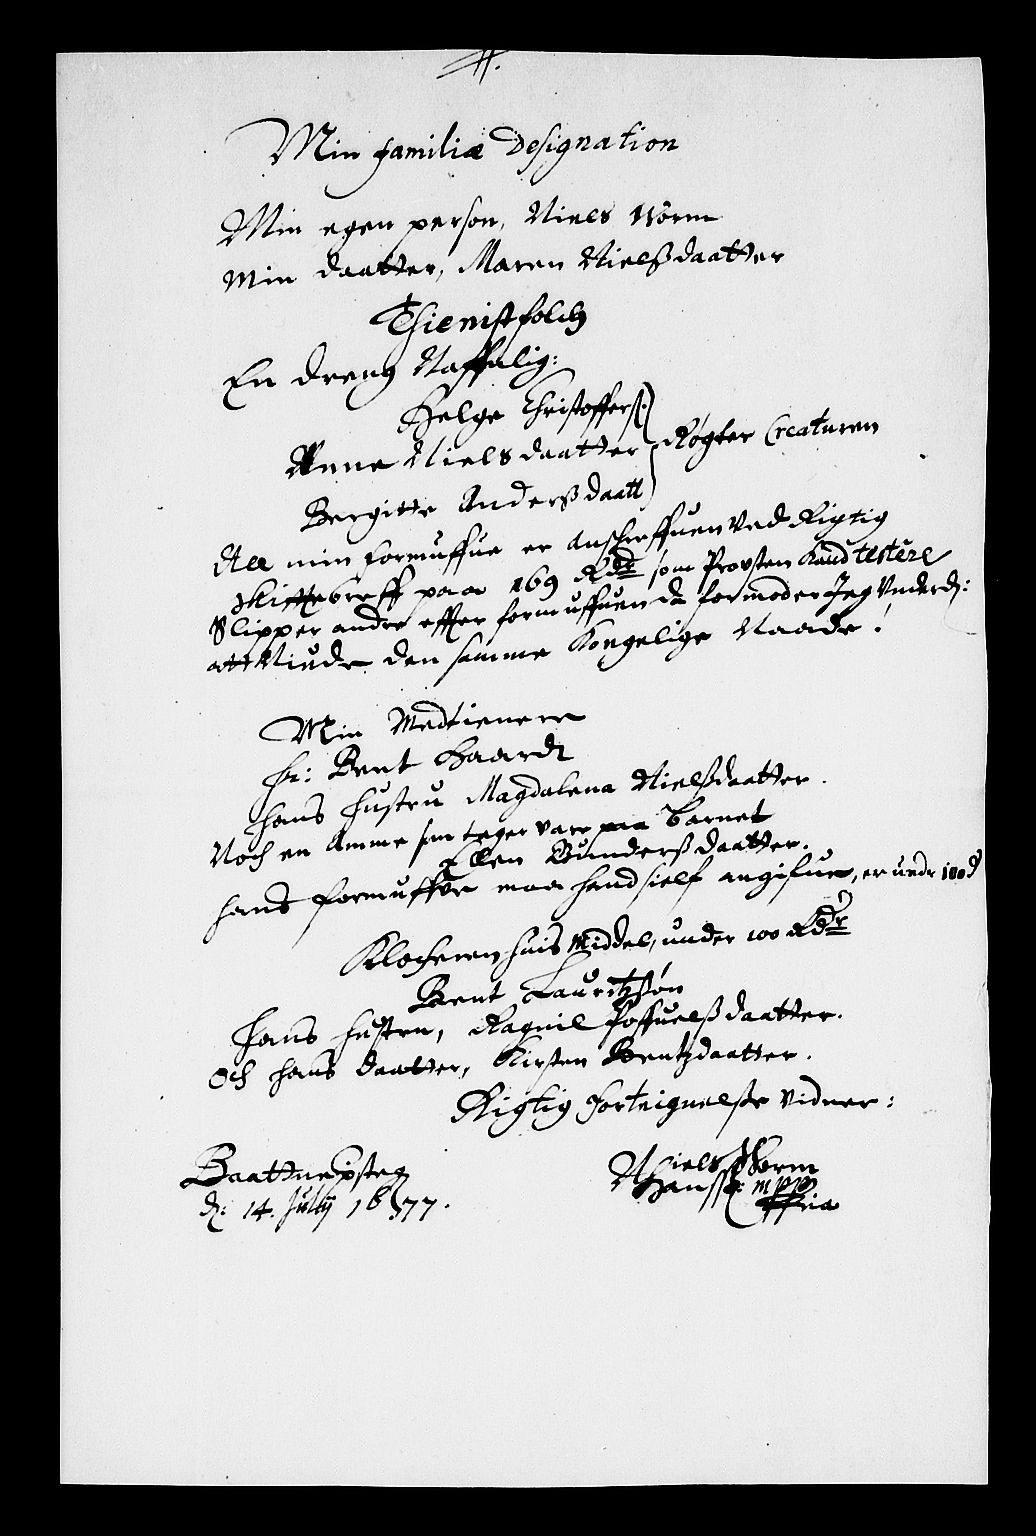 Min familiæ Designation
Min egen person, Niels Worm
Min daatter, Maren Nielsdaatter
Thienistfolch
En dreng Naffnlig:
Helge Christoffers:
Anne Nielsdaatter Røgter Creaturen
Bergitte Andersdaatt
All min formuffue er Anschreffuen Ved Rigtig
skifftebreff paa 169 Rdr som Provsten Kand testere
Slipper andre effter formuffuen da formoder Jeg Underd:
att Niude den samme Kongelige Naade!
Min Medtienere
Hr: Bent Haardt
hans hustru Magdalena Nielsdaatter.
Noch en Amme som tager vare paa Barnet
Ellen Gundersdaatter.
hans formuffue maa hand sielf angifue, er under 100 d
Klocheren huis Middel, under 100 Rdr
Bent Lauritzsøn
Hans hustru, Ragnil Poffuelsdaatter.
Och hans daatter, Kirsten Bentzdaatter.
Rigtig Forteignelse vidner:
Niels Worm
Hanss: mpp
ria
d: 14. July 1677.